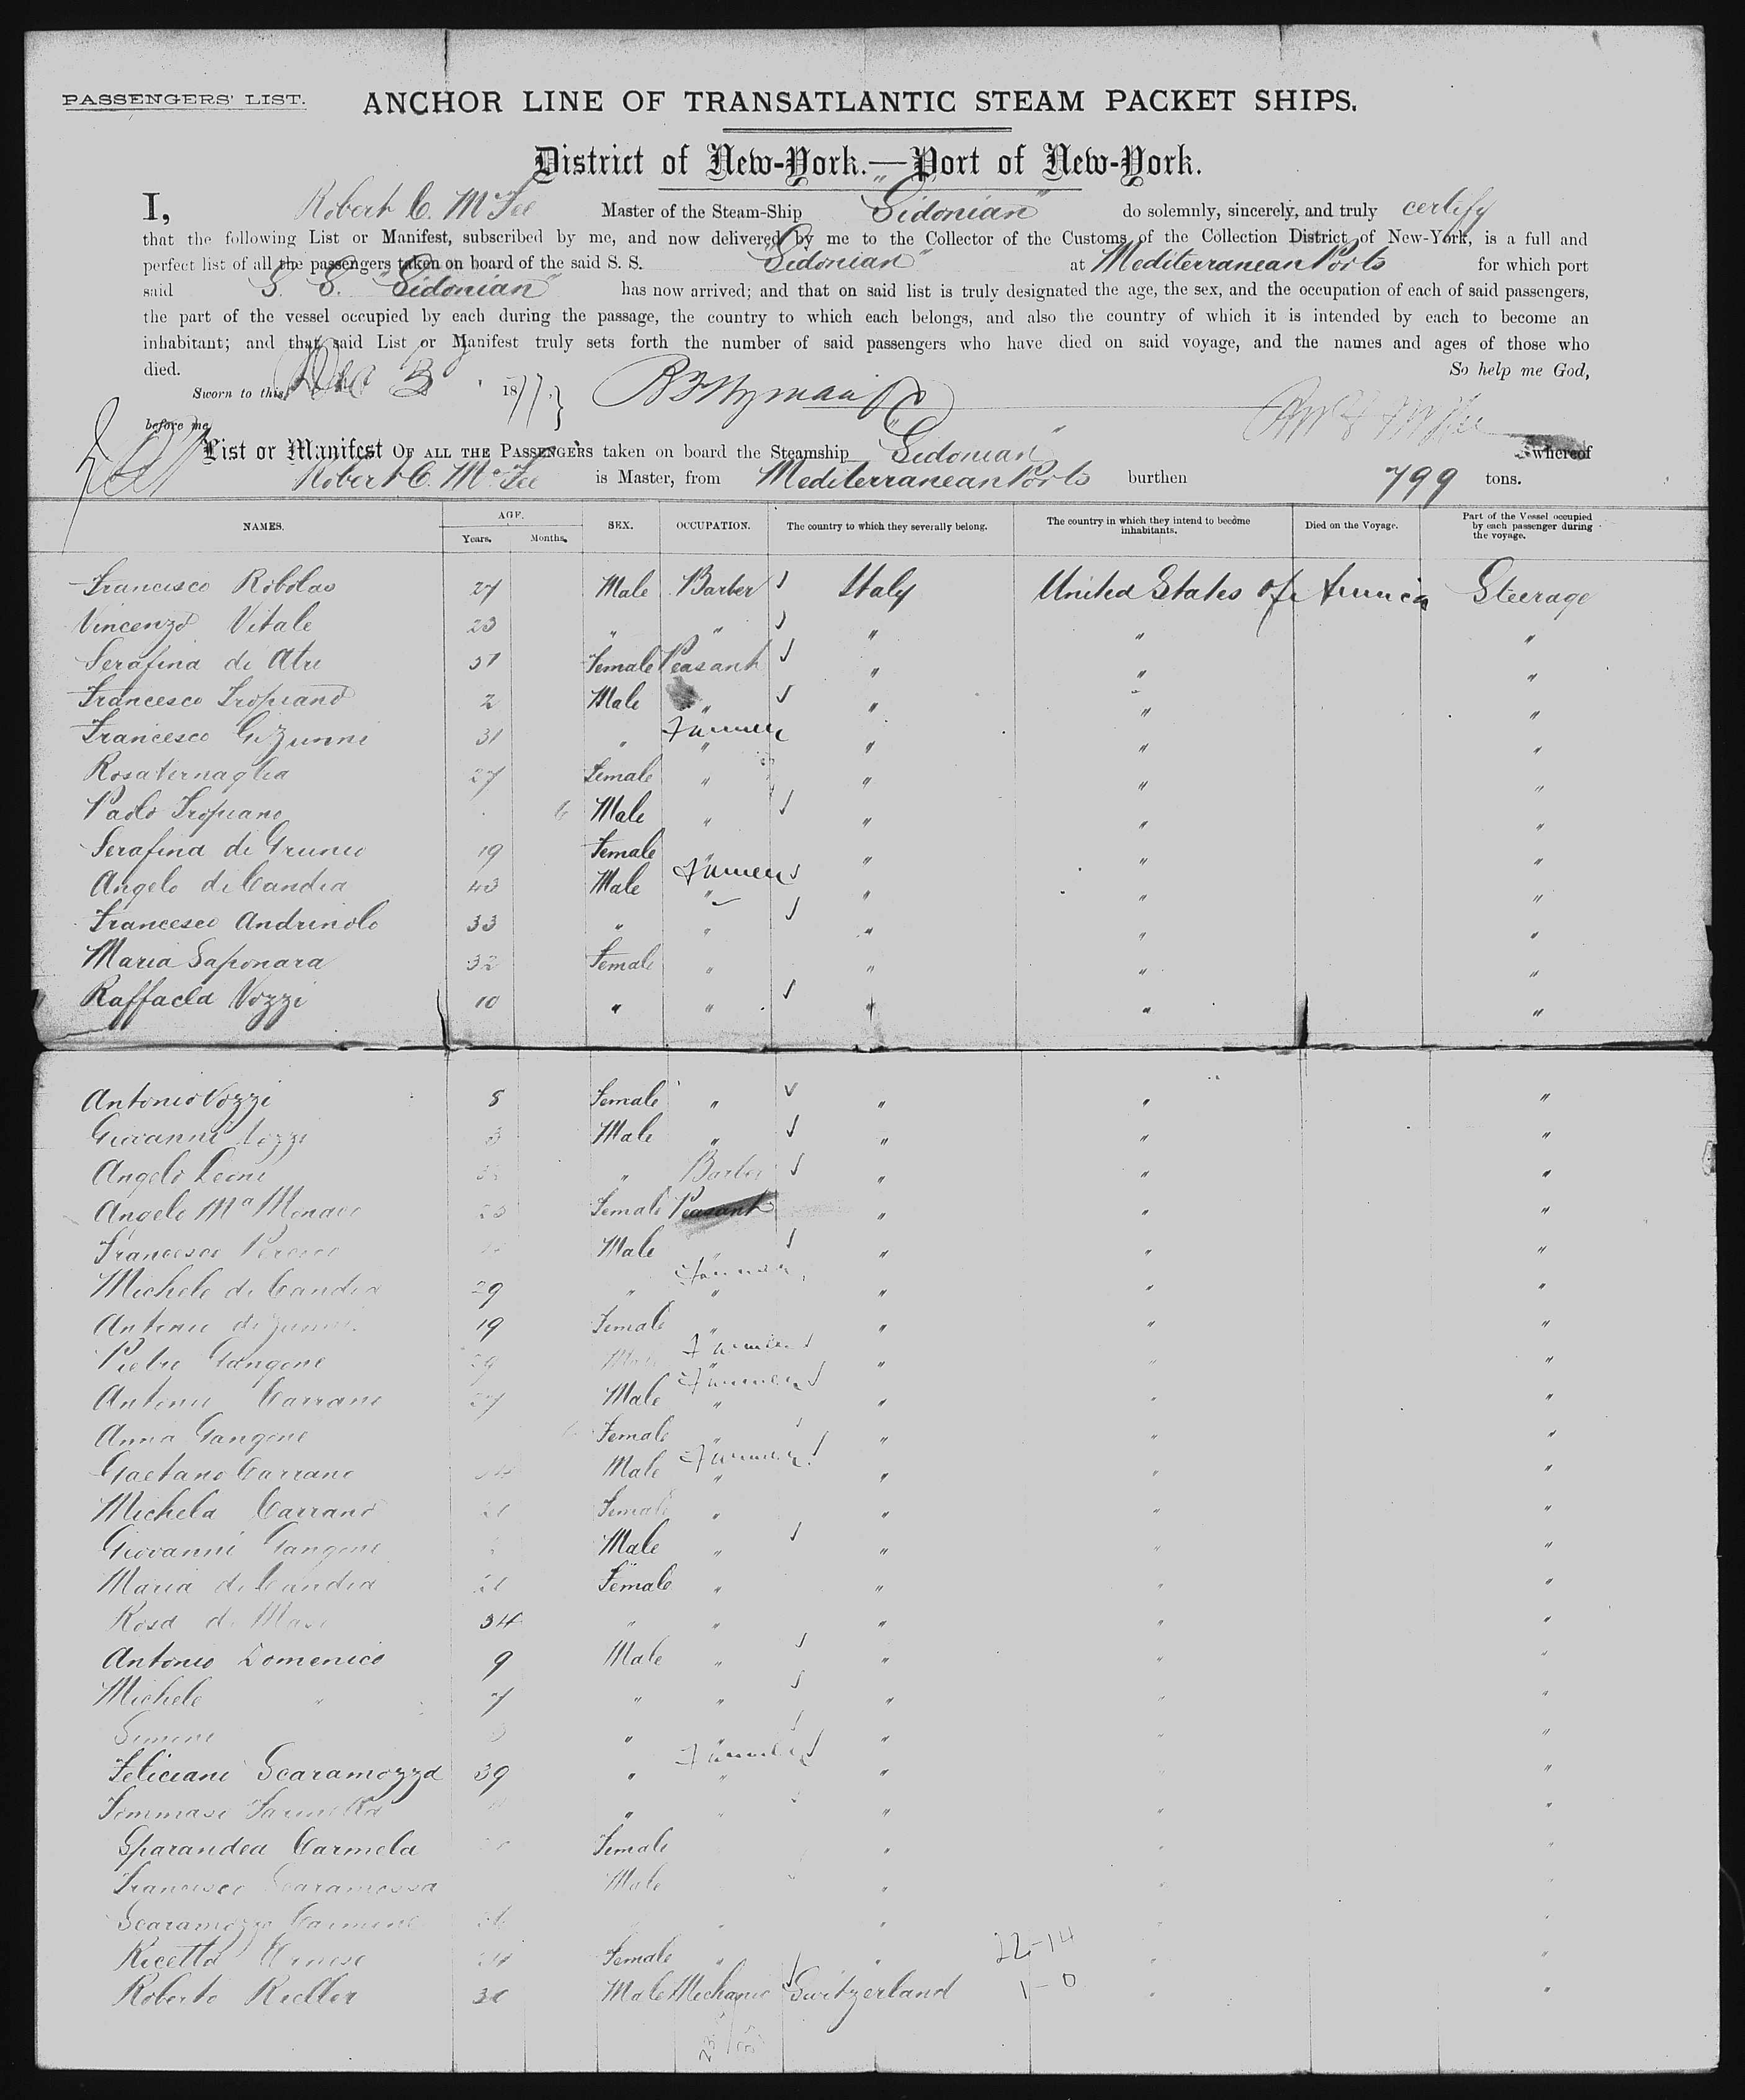 PASSENGERS' LIST.
ANCHOR LINE OF TRANSATLANTIC STEAM PACKET SHIPS.
District of New-York.—Port of New-York.
I, Robert C. McFee Master of the Steam-Ship "Sidonian" do solemnly, sincerely, and truly certify
that the following List or Manifest, subscribed by me, and now delivered by me to the Collector of the Customs of the Collection District of New-York, is a full and
perfect list of all the passengers taken on board of the said S. S. "Sidonian" at Mediterranean Ports for which port
said S. S. "Sidonian" has now arrived; and that on said list is truly designated the age, the sex, and the occupation of each of said passengers,
the part of the vessel occupied by each during the passage, the country to which each belongs, and also the country of which it is intended by each to become an
inhabitant; and that said List or Manifest truly sets forth the number of said passengers who have died on said voyage, and the names and ages of those who
died. So help me God,
Sworn to this Dec 3 1877,
before me
List or Manifest OF ALL THE PASSENGERS taken on board the Steamship "Sidonian" whereof
Robert C. McFee is Master, from Mediterranean Ports burthen 799 tons.
NAMES. AGE. Years. Months. SEX. OCCUPATION. The country to which they severally belong. The country in which they intend to become inhabitants. Died on the Voyage. Part of the Vessel occupied by each passenger during the voyage.
Francisco Robolas 27 Male Barber Italy United States of America Steerage
Vincenzo Vitale 23 " " " " "
Serafina di Atri Female Peasant " " "
Francesco Tropiano 2 Male " " " "
Francesco 31 " Farmer " " " "
Rosa 27 Female " " " "
Paolo Tropiano 6 Male " " " "
Serafina di Grunio 19 Female " " " "
Angelo di Candia 43 Male Farmer " " " "
Francesco Andrinolo 33 " " " " "
Maria Saponara 32 Female " " " "
Raffaela Vozzi 10 " " " " "
Antonio Vozzi 8 Female " " " "
Giovanni Vozzi 3 Male " " " "
Angelo Leone " Barber " " "
Angelo Ma Monaco 23 Female Peasant " " "
Francesco Male " " "
Michele di Candia 29 " Farmer " " " "
Antonio 19 Female " " " "
Pietro Gangone 29 Male Farmer " " " "
Antonio Carrano 27 Male Farmer " " " "
Anna Gangone 6 Female " " " "
Gaetano Carrano Male Farmer " " " "
Michela Carrano Female " " " "
Giovanni Gangone Male " " " "
Maria di Candia Female " " " "
Rosa di Masi 34 " " " " "
Antonio Domenico 9 Male " " " "
Michele " 7 " " " " "
Simone 3 " " " " "
Feliciani Scaramozza 39 " Farmer " " " "
Tommaso " " " " "
Sparandea Carmela Female " " "
Francesco Scaramossa Male " " "
Scaramozza Carmine " " " "
Ricetta Female " " " " 22-14
Roberto Rieller 30 Male Mechanic Switzerland 1-0 " "